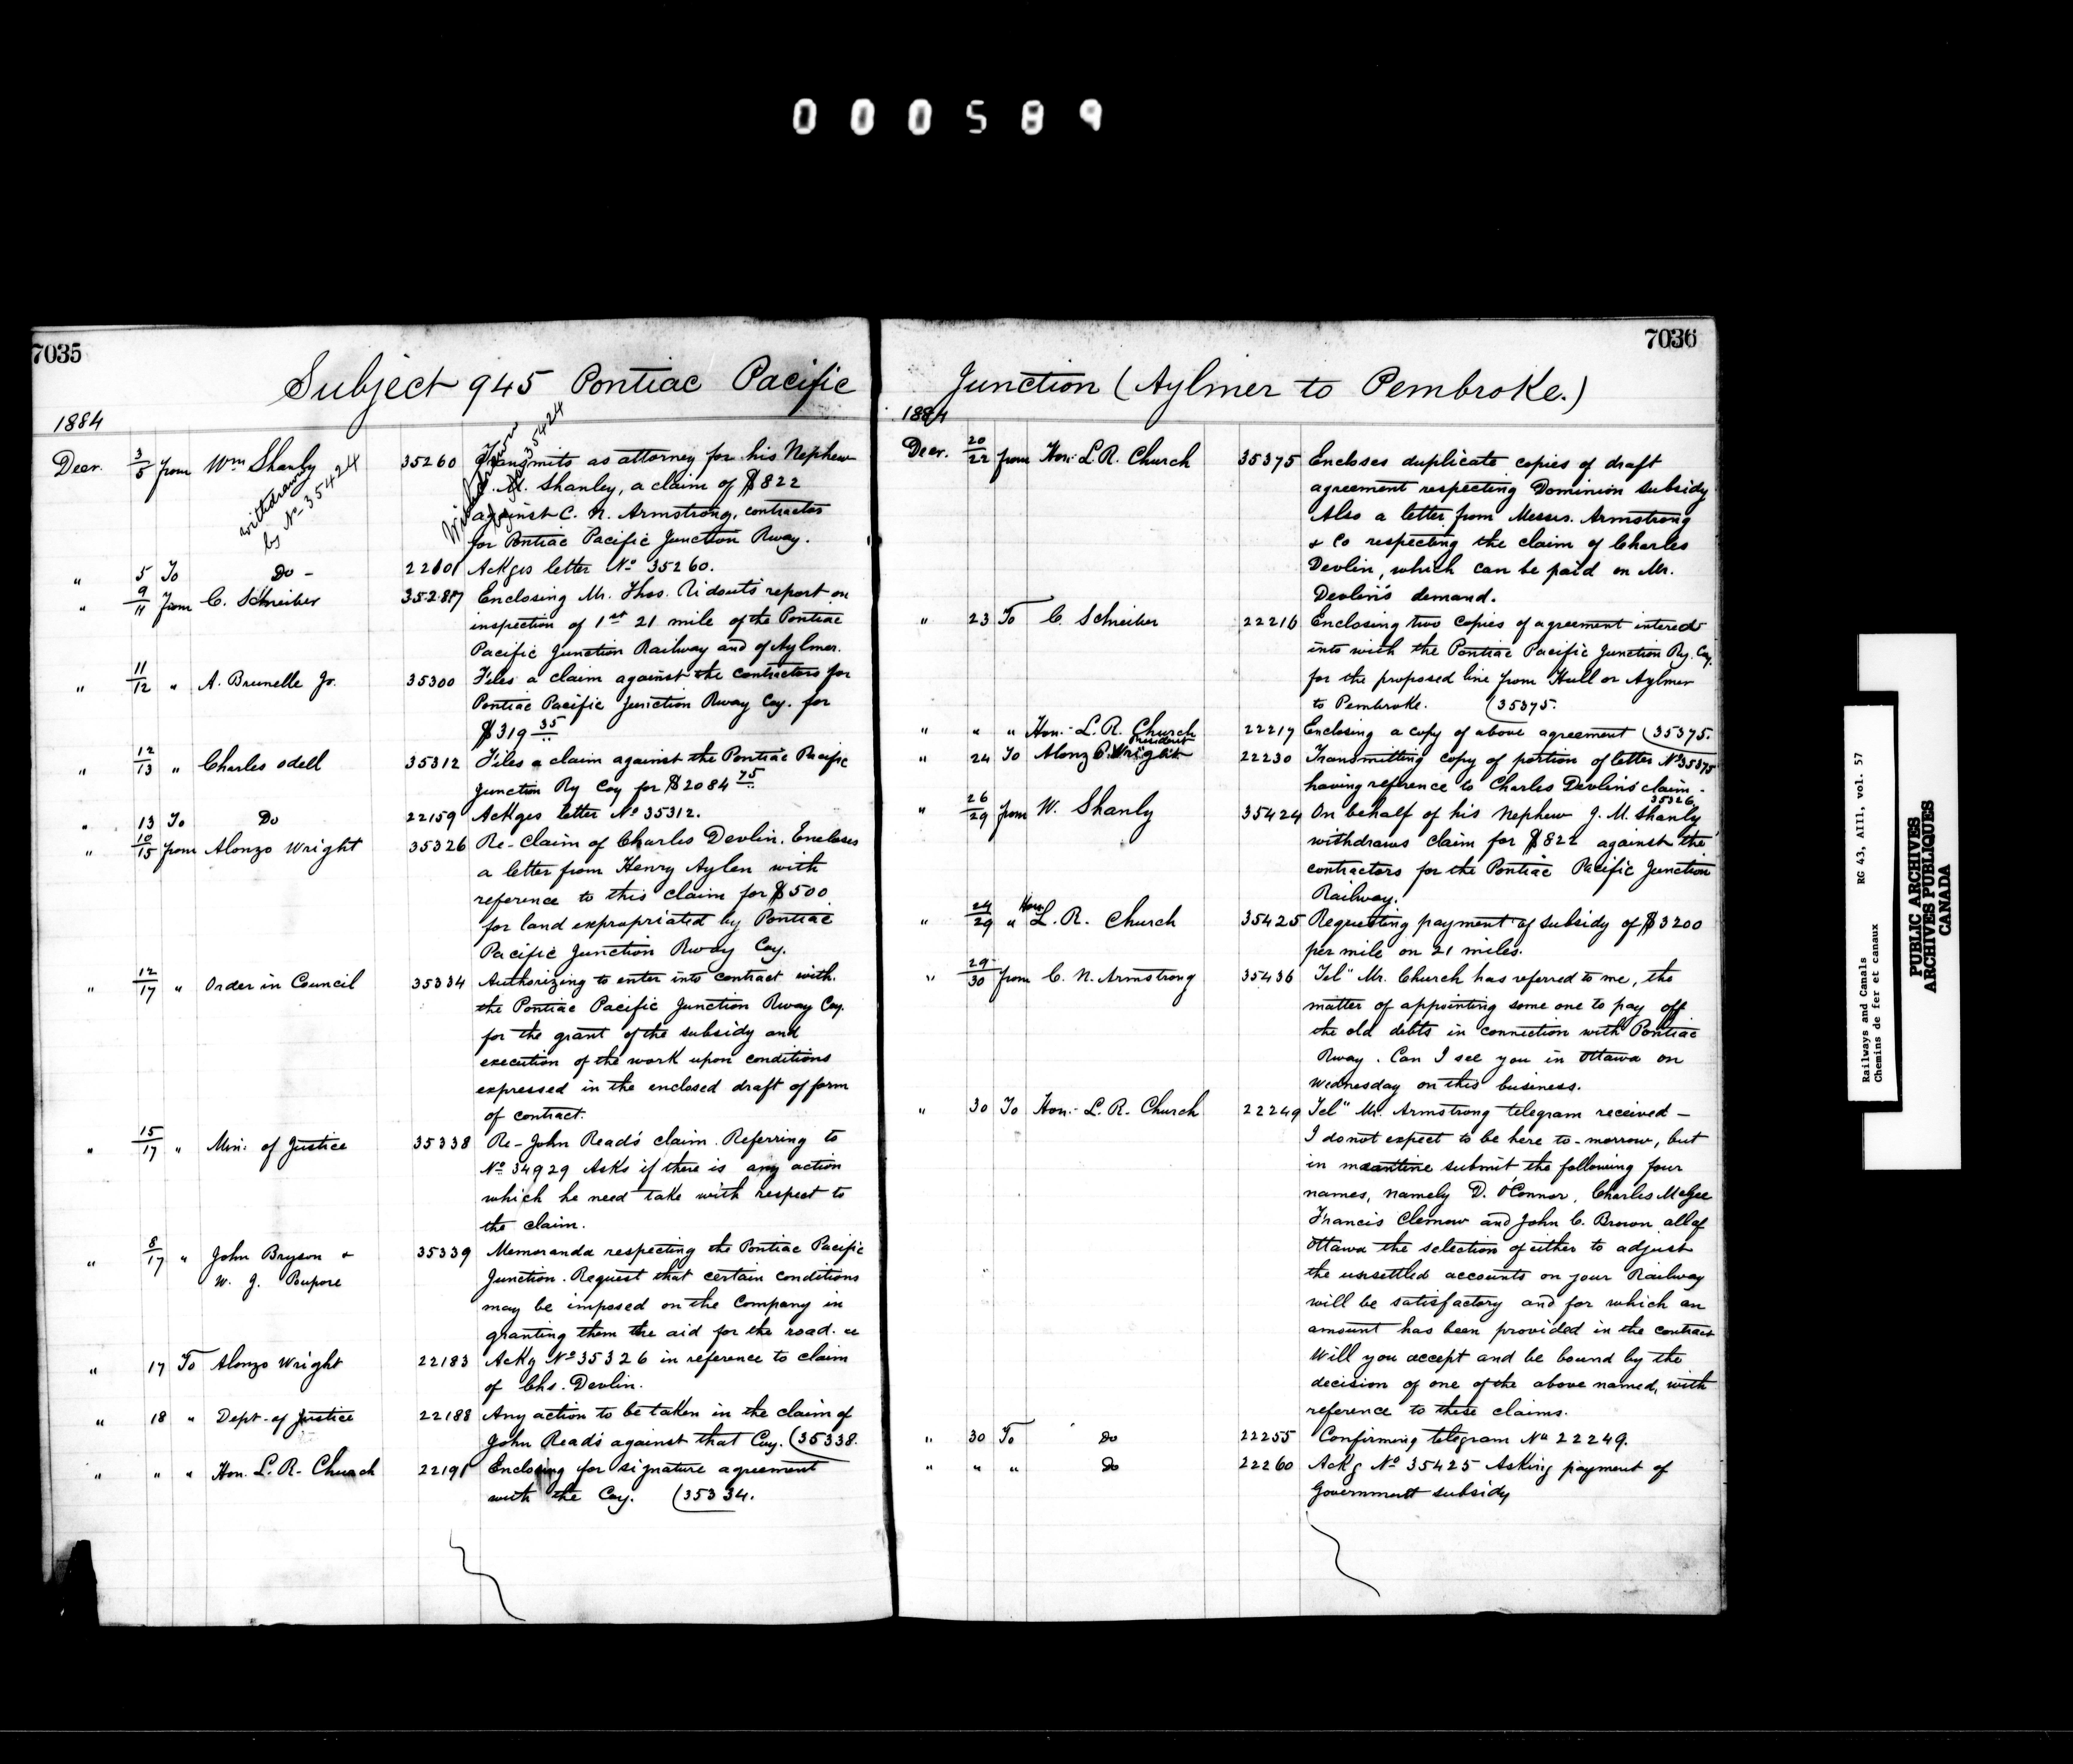 000589
7035
Subject 945 Pontiac Pacific
1884
Decr. 3/5 from Wm Shanly 35260 Transmits as attorney for his Nephew
withdrawn by No 35424
Withdrawn by No 35424
J. M. Shanley, a claim of $822
against C. N. Armstrong, contractor
for Pontiac Pacific Junction Rway.
" 5 To Do - 22101 Ackges letter No 35260.
" 9/11 From C. Schreiber 35287 Enclosing Mr. Thos. Ridouts report on
inspection of 1st 21 mile of the Pontiac
Pacific Junction Railway and of Aylmer.
" 11/12 " A. Brunelle Jr. 35300 Files a claim against the contractors for
Pontiac Pacific Junction Rway Coy. for
$319 35
" 12/13 " Charles Odell 35312 Files a claim against the Pontiac Pacific
Junction Ry Coy for $2084 75
" 13 To Do 22159 Ackges letter No 35312.
" 10/15 from Alonzo Wright 35326 Re-Claim of Charles Devlin. Encloses
a letter from Henry Aylen with
reference to this claim for $500
for land expropriated by Pontiac
Pacific Junction Rway Coy.
" 12/17 " Order in Council 35334 Authorizing to enter into contract with
the Pontiac Pacific Junction Rway Coy.
for the grant of the subsidy and
execution of the work upon conditions
expressed in the enclosed draft of form
of contract.
" 15/17 " Min: of Justice 35338 Re-John Read's claim. Referring to
No 34929 Asks if there is any action
which he need take with respect to
the claim.
" 8/17 " John Bryson & 35339 Memoranda respecting the Pontiac Pacific
W. J. Poupore Junction. Request that certain conditions
may be imposed on the Company in
granting them the aid for the road. &c
" 17 To Alonzo Wright 22183 Ackg No 35326 in reference to claim
of Chs. Devlin.
" 18 " Dept. of Justice 22188 Any action to be taken in the claim of
John Read's against that Coy. (35338.
" " " Hon. L. R. Church 22191 Enclosing for signature agreement
with the Coy. (35334.
7036
Junction (Aylmer to Pembroke.)
1884
Decr. 20/22 from Hon: L. R. Church 35375 Encloses duplicate copies of draft
agreement respecting Dominion subsidy
Also a letter from Messrs. Armstrong
& Co respecting the claim of Charles
Devlin, which can be paid on Mr.
Devlin's demand.
" 23 To C. Schreiber 22216 Enclosing two copies of agreement intered
into with the Pontiac Pacific Junction Ry. Coy.
for the proposed line from Hull or Aylmer
to Pembroke. (35375.
" " " Hon:- L. R. Church 22217 Enclosing a copy of above agreement (35375.
President
" 24 To Alonzo Wright 22230 Transmitting copy of portion of letter No 35375
having reference to Charles Devlin's claim -
35326
" 26/29 from W. Shanly 35424 On behalf of his Nephew J. M. Shanly
withdraws claim for $822 against the
contractors for the Pontiac Pacific Junction
Railway.
" 24/29 " Hon. L. R. Church 35425 Requesting payment of subsidy of $3200
per mile on 21 miles.
" 29/30 from C. N. Armstrong 35436 Tel" Mr. Church has referred to me, the
matter of appointing some one to pay off
the old debts in connection with Pontiac
Rway. Can I see you in Ottawa on
Wednesday on this business.
" 30 To Hon:- L. R. Church 22249 Tel" Mr. Armstrong telegram received -
I do not expect to be here to-morrow, but
in meantime submit the following four
names, namely D. O'Connor, Charles McGee
Francis Clemow and John C. Brown all of
Ottawa the selection of either to adjust
the unsettled accounts on your Railway
will be satisfactory and for which an
amount has been provided in the contract
Will you accept and be bound by the
decision of one of the above named, with
reference to these claims.
" 30 To Do 22255 Confirming telegram No 22249.
" " " Do 22260 Ackg No 35425 Asking payment of
Government subsidy
Railways and Canals RG 43, AIII, vol. 57
Chemins de fer et canaux
PUBLIC ARCHIVES
ARCHIVES PUBLIQUES
CANADA